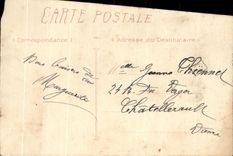 CARTE POSTALE
Correspondance
Adresse du Destinataire
Bons baisers de
Marguerite
Mlle Jeanne Thionnet
24 R. du
Châtellerault
Vienne